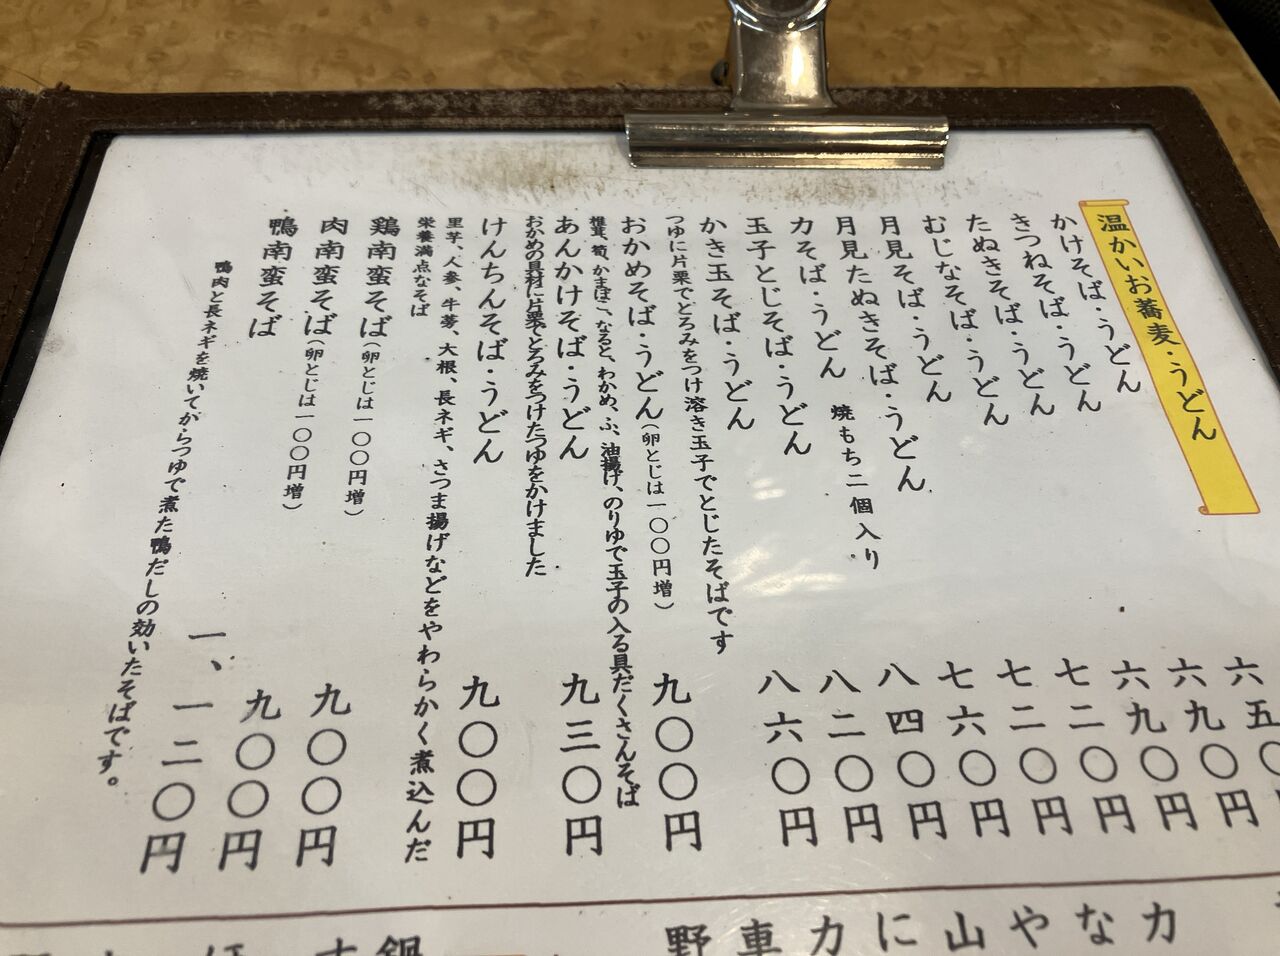 温かいお蕎麦・うどん
かけそば・うどん 六五〇円
きつねそば・うどん 六九〇円
たぬきそば・うどん 六九〇円
むじなそば・うどん 七二〇円
月見そば・うどん 七二〇円
月見たぬきそば・うどん 七六〇円
力そば・うどん 焼もち二個入り 八四〇円
玉子とじそば・うどん 八二〇円
かき玉そば・うどん 八六〇円
つゆに片栗でとろみをつけ溶き玉子でとじたそばです
おかめそば・うどん(卵とじは一〇〇円増) 九〇〇円
椎茸、筍、かまぼこ、なると、わかめ、ふ、油揚げ、のりゆで玉子の入る具だくさんそば
あんかけそば・うどん 九三〇円
おかめの具材に片栗でとろみをつけたつゆをかけました
けんちんそば・うどん 九〇〇円
里芋、人参、牛蒡、大根、長ネギ、さつま揚げなどをやわらかく煮込んだ
栄養満点なそば
鶏南蛮そば(卵とじは一〇〇円増) 九〇〇円
肉南蛮そば(卵とじは一〇〇円増) 九〇〇円
鴨南蛮そば 一、一二〇円
鴨肉と長ネギを焼いてからつゆで煮た鴨だしの効いたそばです。